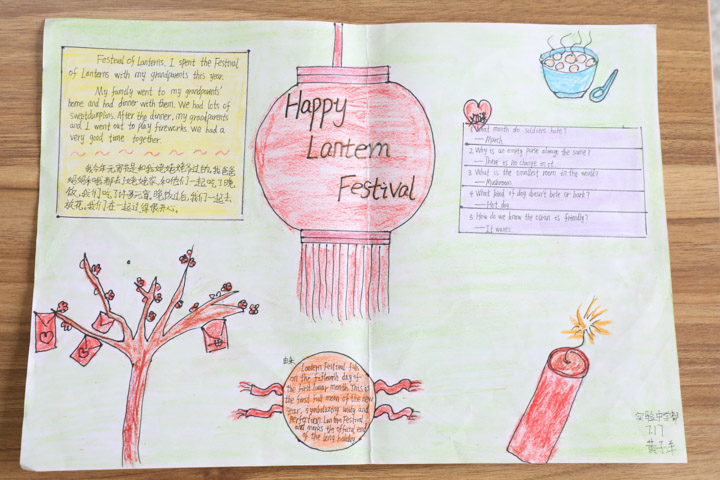 Festival of Lanterns. I spent the Festival
of Lanterns with my grandparents this year.
My family went to my grandparents'
home and had dinner with them. We had lots of
sweetdumplins. After the dinner, my grandparents
and I went out to play fireworks. We had a
very good time together.
我今年元宵节是和我姥姥姥爷过的。我爸爸
妈妈和我都去了姥姥家,和他们一起吃了晚
饭。我们吃了许多元宵。晚饭过后,我们一起去
放花。我们在一起过得很开心。
Happy
Lantern
Festival
1 What month do soldiers hate?
— March
2 Why is an empty purse always the same?
— There is no change in it.
3 What is the smallest room in the world?
— Mushroom
4 What kind of dog doesn't bite or bark?
— Hot dog
5 How do we know the ocean is friendly?
— It waves
由来
Lantern Festival falls
on the fifteenth day of
the first lunar month. This is
the first full moon of the new
year, symbolizing unity and
perfection. Lantern Festival
and marks the official end
of the long holiday.
实验中学部
7.17